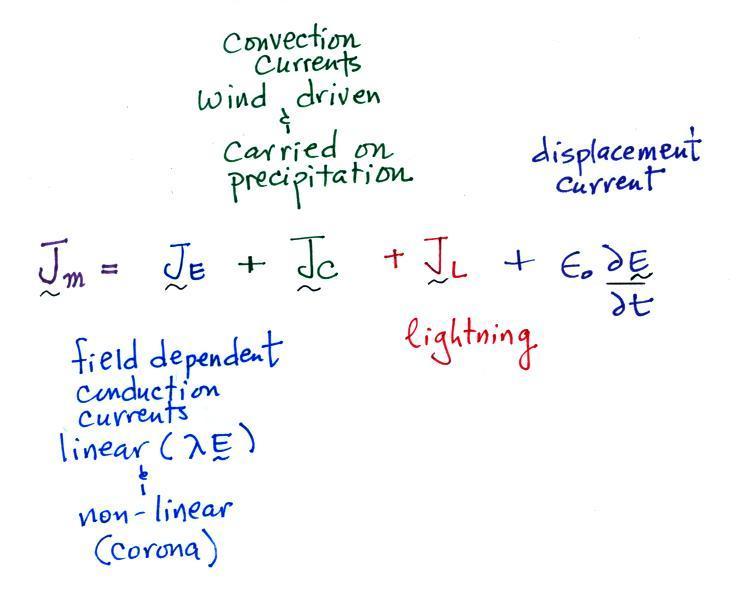 Convection
Currents
Wind driven
&
Carried on
precipitation
displacement
current
J̰m = J̰E + J̰C + J̰L + ϵ₀ ∂Ḛ/∂t
lightning
field dependent
conduction
currents
linear (λḚ)
&
non-linear
(corona)